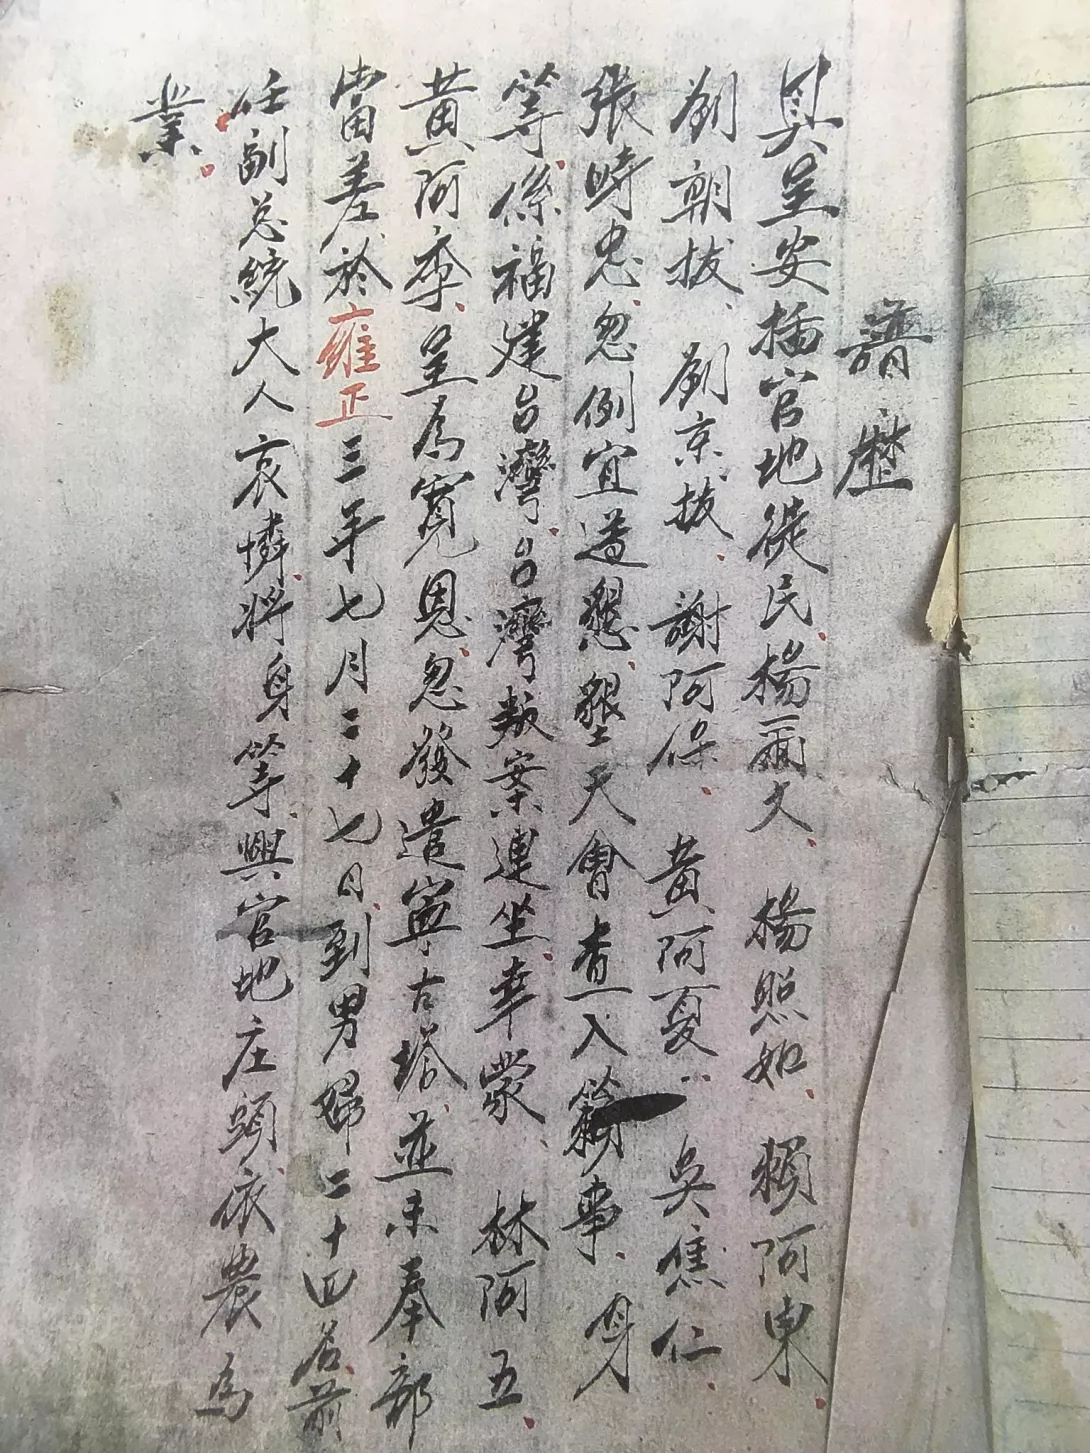 譜歷
具呈安插官地徙民楊爾文楊照如賴阿東
劉朝拔劉京拔謝阿保黃阿夏吳焦仁
張時忠忽例宜道懇墾天會查入籍事身
等係福建台灣台灣叛案連坐幸蒙林阿五
黃阿季呈為寬恩忽發遣寧古塔並未奉部
當差於雍正三年七月二十七日到男婦二十四名前
任副总統大人哀憐將身等興官地庄頭依農為
業